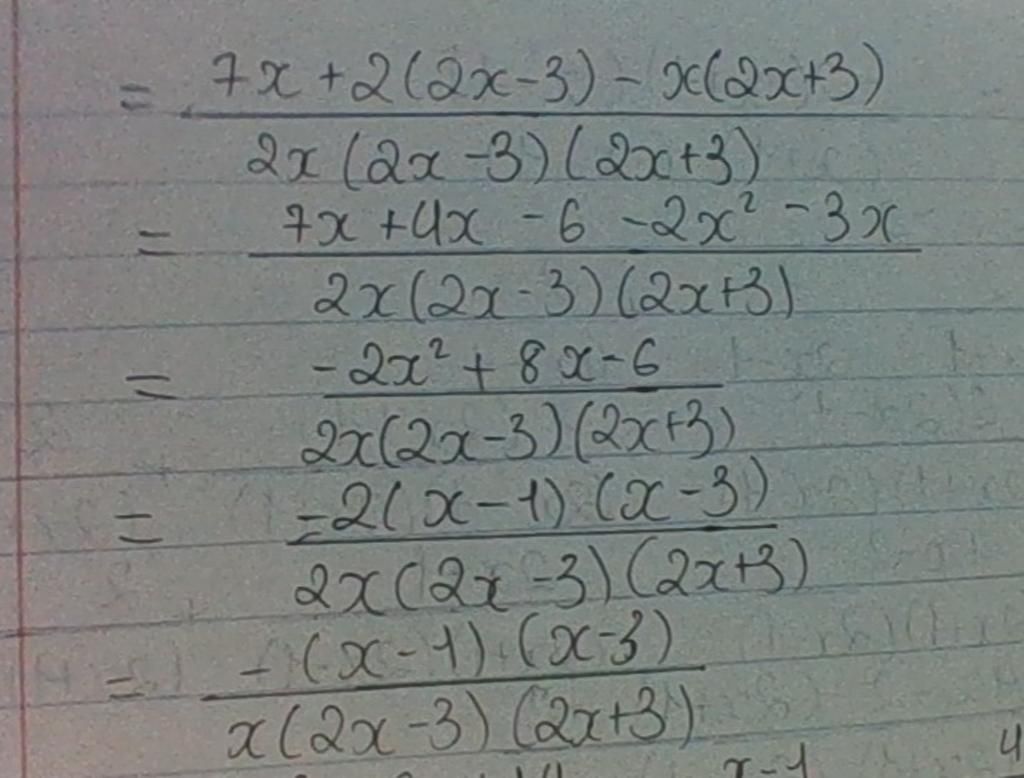 = 7x + 2(2x-3) - x(2x+3)
2x(2x-3)(2x+3)
= 7x + 4x - 6 - 2x² - 3x
2x(2x-3)(2x+3)
= -2x² + 8x - 6
2x(2x-3)(2x+3)
= -2(x-1)(x-3)
2x(2x-3)(2x+3)
= -(x-1).(x-3)
x(2x-3)(2x+3)
x-1 4